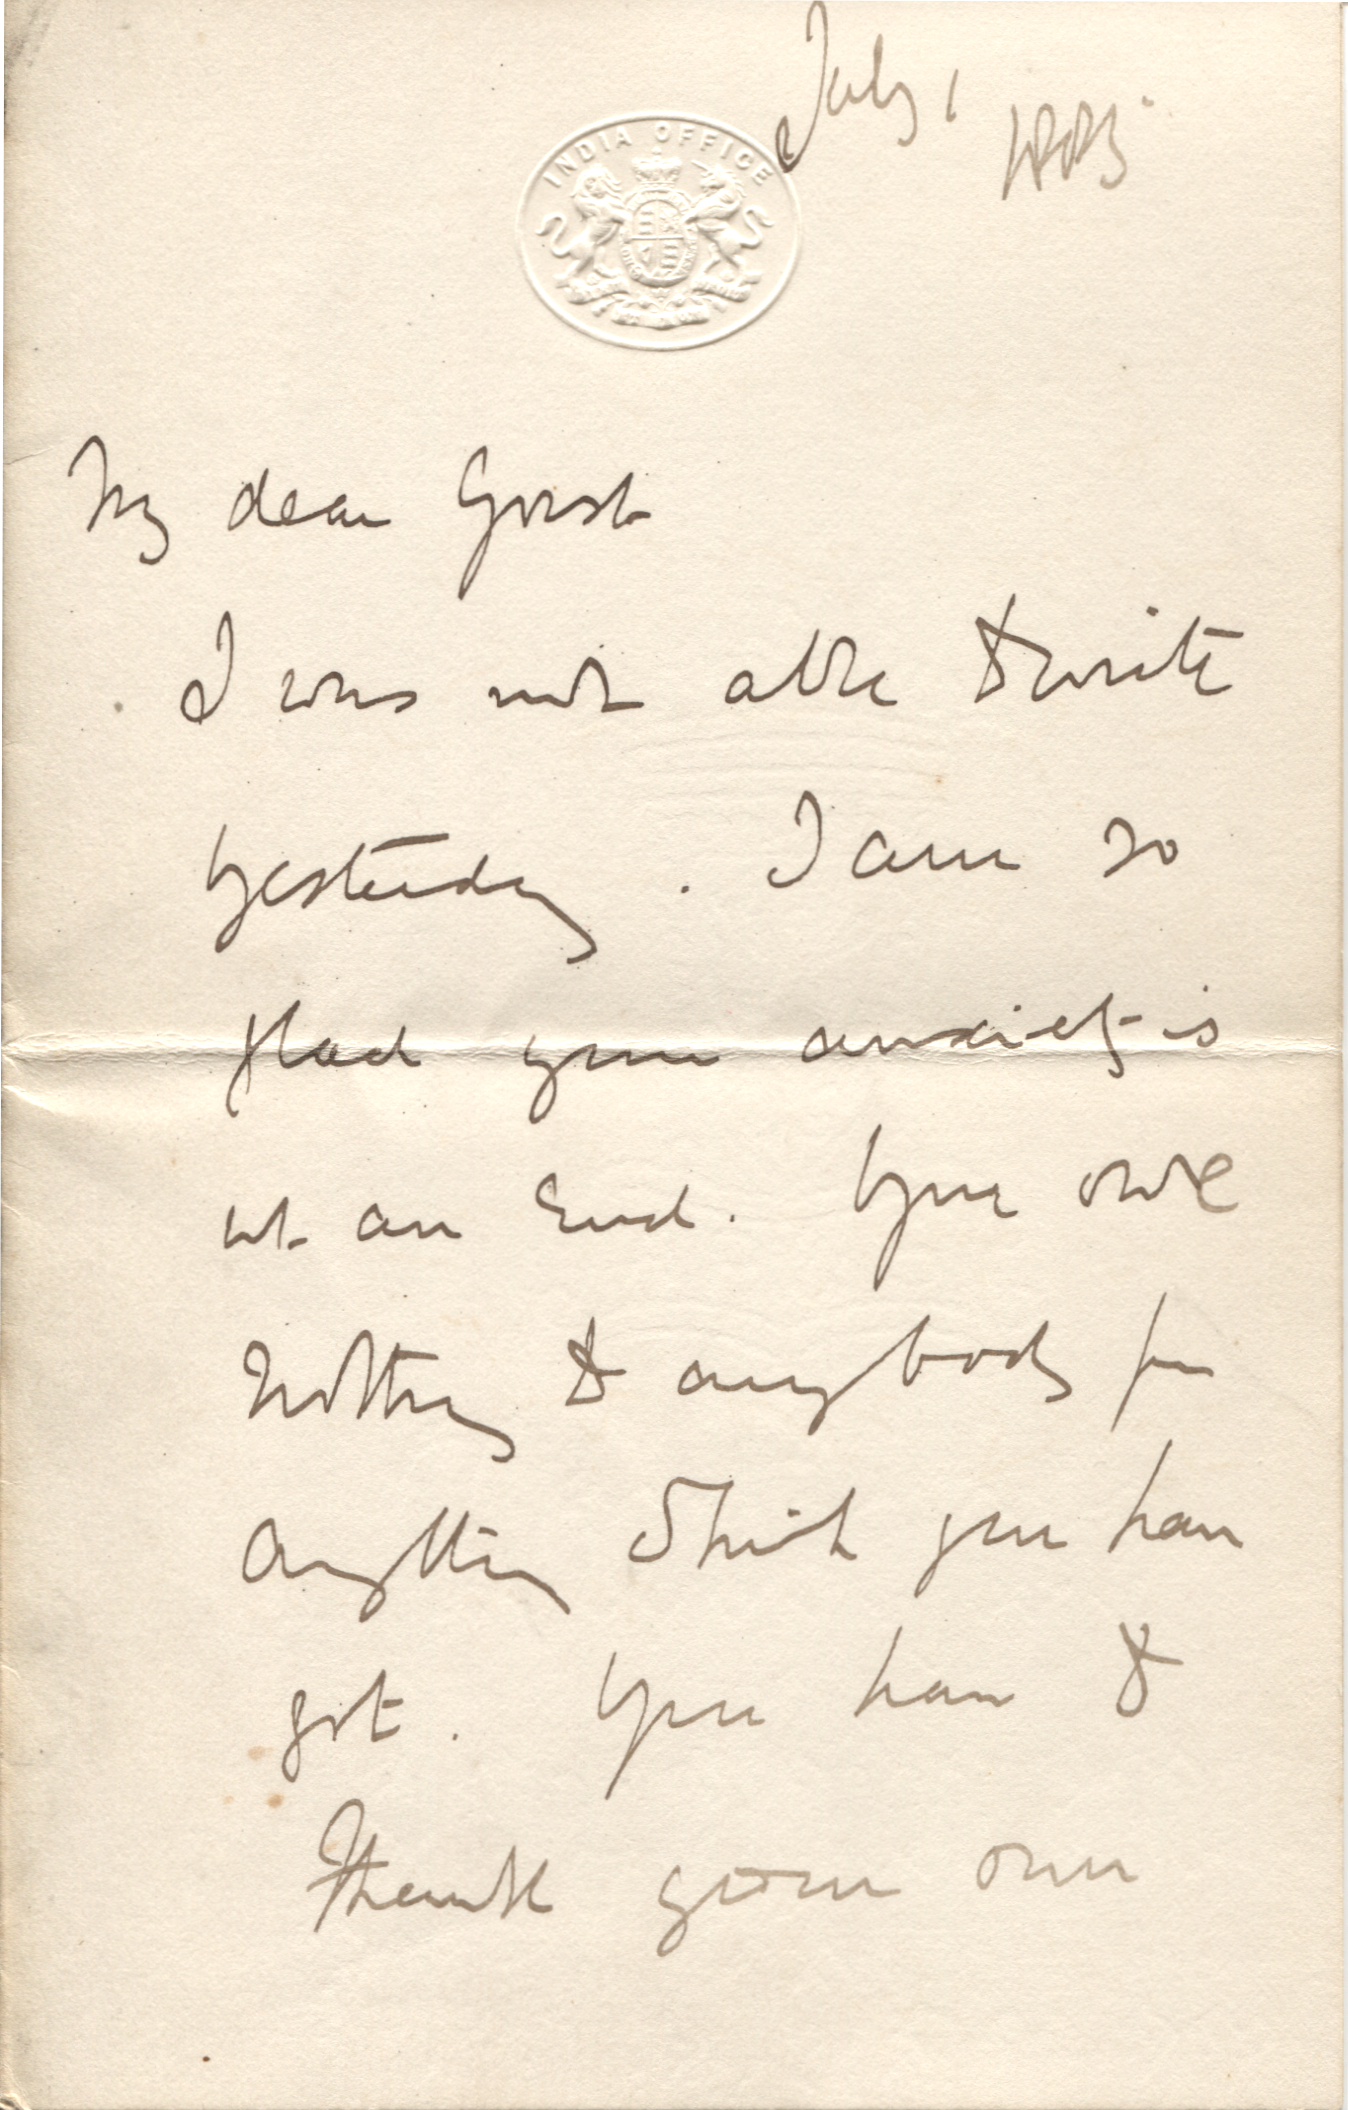 July 1
1885
INDIA OFFICE
My dear Gorst
I was not able to write
yesterday. I am so
glad your anxiety is
at an end. You owe
nothing to anybody for
anything which you have
got. You have to
thank your own